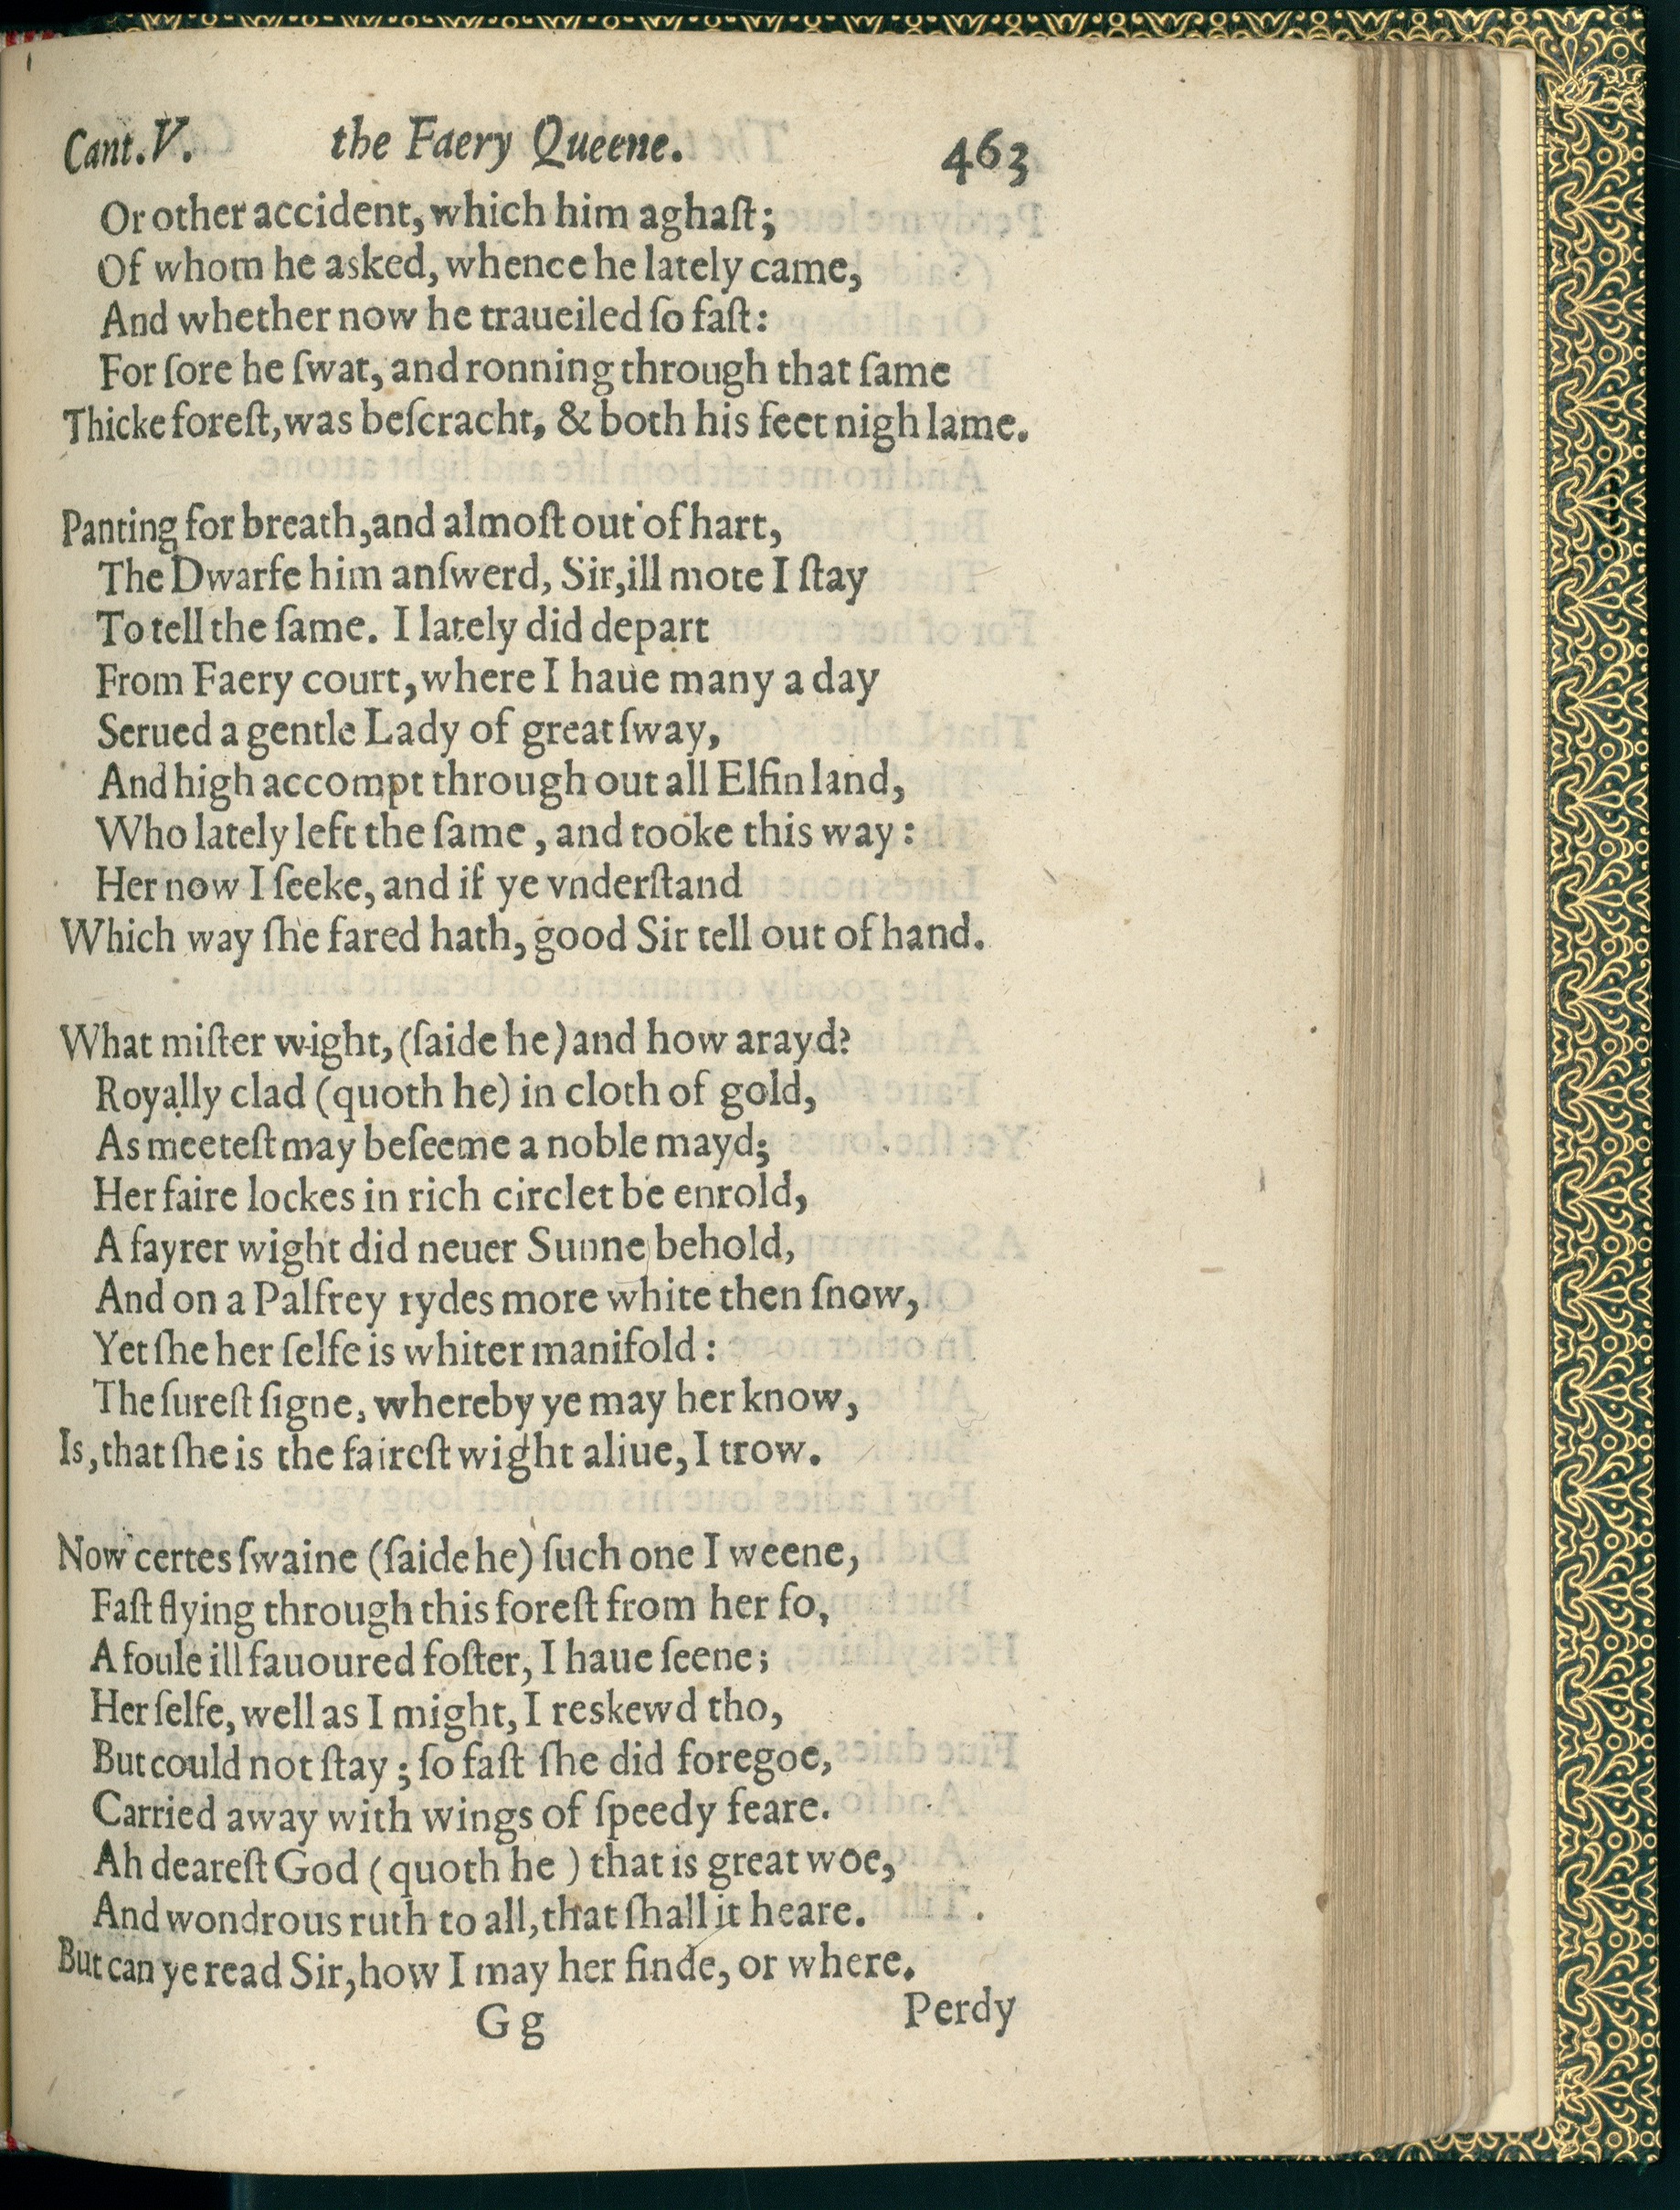 Cant. V. the Faery Queene. 463
Or other accident, which him aghaſt;
Of whom he asked, whence he lately came,
And whether now he traueiled ſo faſt:
For ſore he ſwat, and ronning through that ſame
Thicke foreſt, was beſcracht, & both his feet nigh lame.
Panting for breath, and almoſt out of hart,
The Dwarfe him anſwerd, Sir, ill mote I ſtay
To tell the ſame. I lately did depart
From Faery court, where I haue many a day
Serued a gentle Lady of great ſway,
And high accompt through out all Elfin land,
Who lately left the ſame, and tooke this way:
Her now I ſeeke, and if ye vnderſtand
Which way ſhe fared hath, good Sir tell out of hand.
What miſter wight, (ſaide he) and how arayd?
Royally clad (quoth he) in cloth of gold,
As meeteſt may beſeeme a noble mayd;
Her faire lockes in rich circlet be enrold,
A fayrer wight did neuer Sunne behold,
And on a Palfrey rydes more white then ſnow,
Yet ſhe her ſelfe is whiter manifold:
The ſureſt ſigne, whereby ye may her know,
Is, that ſhe is the faireſt wight aliue, I trow.
Now certes ſwaine (ſaide he) ſuch one I weene,
Faſt flying through this foreſt from her fo,
A foule ill fauoured foſter, I haue ſeene;
Her ſelfe, well as I might, I reskewd tho,
But could not ſtay; ſo faſt ſhe did foregoe,
Carried away with wings of ſpeedy feare.
Ah deareſt God (quoth he) that is great woe,
And wondrous ruth to all, that ſhall it heare.
But can ye read Sir, how I may her finde, or where.
G g Perdy